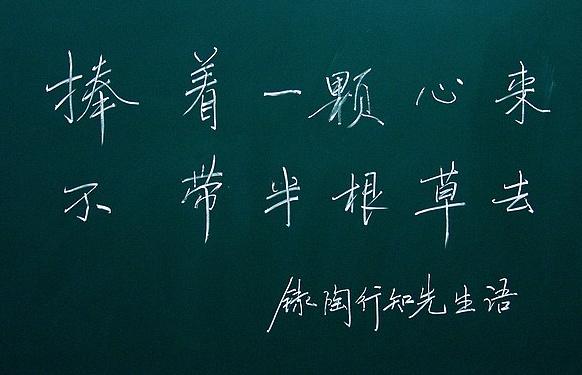 捧着一颗心来
不带半根草去
録陶行知先生语